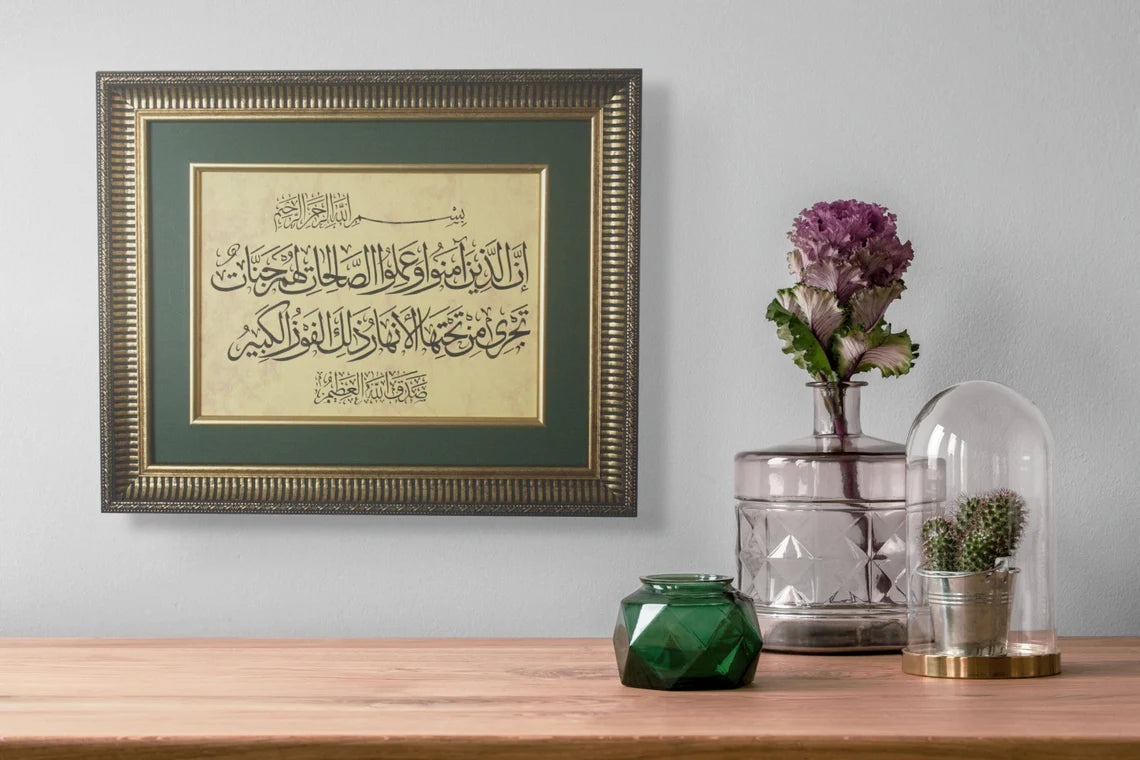 بسم الله الرحمن الرحيم
إنَّ الَّذينَ آمَنُوا وَعَمِلُوا الصَّالِحَاتِ لَهُمْ جَنَّاتٌ
تَجْرِي مِنْ تَحْتِهَا الأَنْهَارُ ذَلِكَ الفَوْزُ الكَبِيرُ
صَدَقَ اللهُ العَظِيمُ